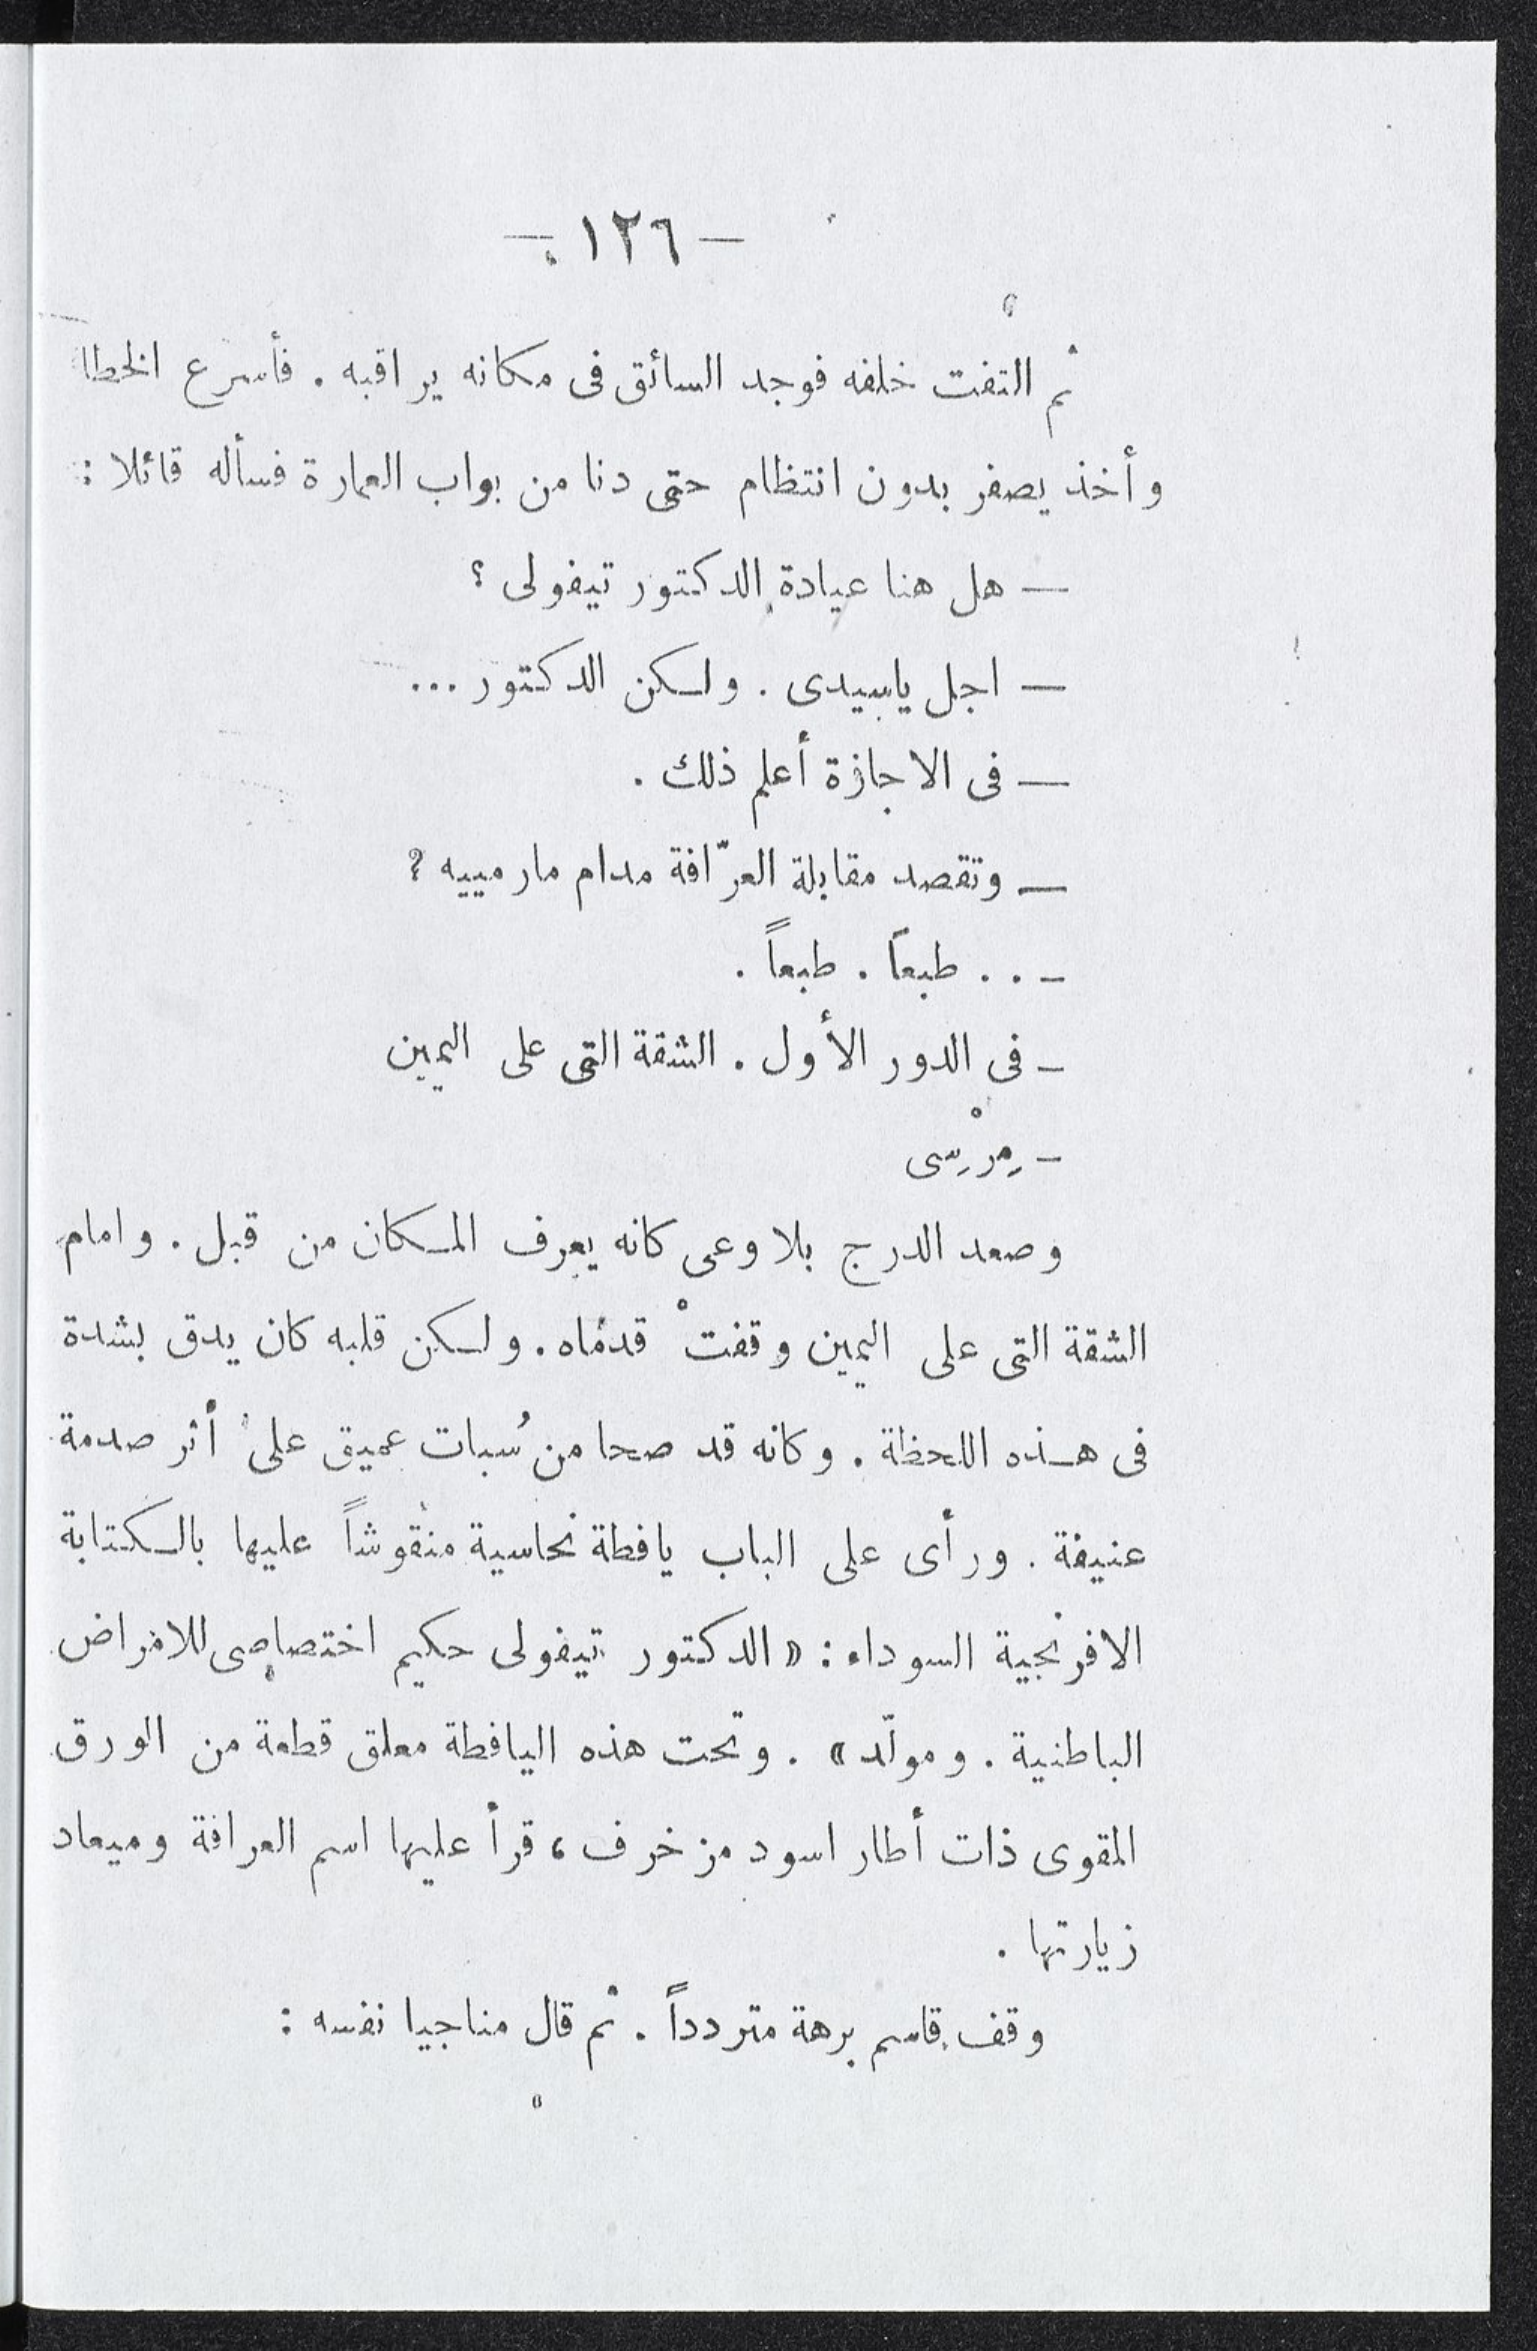 — ١٢٦ —
ثم التفت خلفه فوجد السائق فى مكانه يراقبه . فأسرع الخطا
وأخذ يصفر بدون انتظام حتى دنا من بواب العمارة فسأله قائلا :
— هل هنا عيادة الدكتور تيفولى ؟
— اجل ياسيدى . ولكن الدكتور ...
— فى الاجازة أعلم ذلك .
— وتقصد مقابلة العرّافة مدام مارمييه ؟
— . . طبعاً . طبعاً .
— فى الدور الأول . الشقة التى على اليمين
— مِرْسِى
وصعد الدرج بلا وعى كانه يعرف المكان من قبل . وامام
الشقة التى على اليمين وقفتْ قدماه . ولكن قلبه كان يدق بشدة
فى هذه اللحظة . وكانه قد صحا من سُبات عميق على أثر صدمة
عنيفة . ورأى على الباب يافطة نحاسية منقوشاً عليها بالكتابة
الافرنجية السوداء : « الدكتور تيفولى حكيم اختصاصى للامراض
الباطنية . ومولّد » . وتحت هذه اليافطة معلق قطعة من الورق
المقوى ذات أطار اسود مزخرف ، قرأ عليها اسم العرافة وميعاد
زيارتها .
وقف قاسم برهة متردداً . ثم قال مناجيا نفسه :